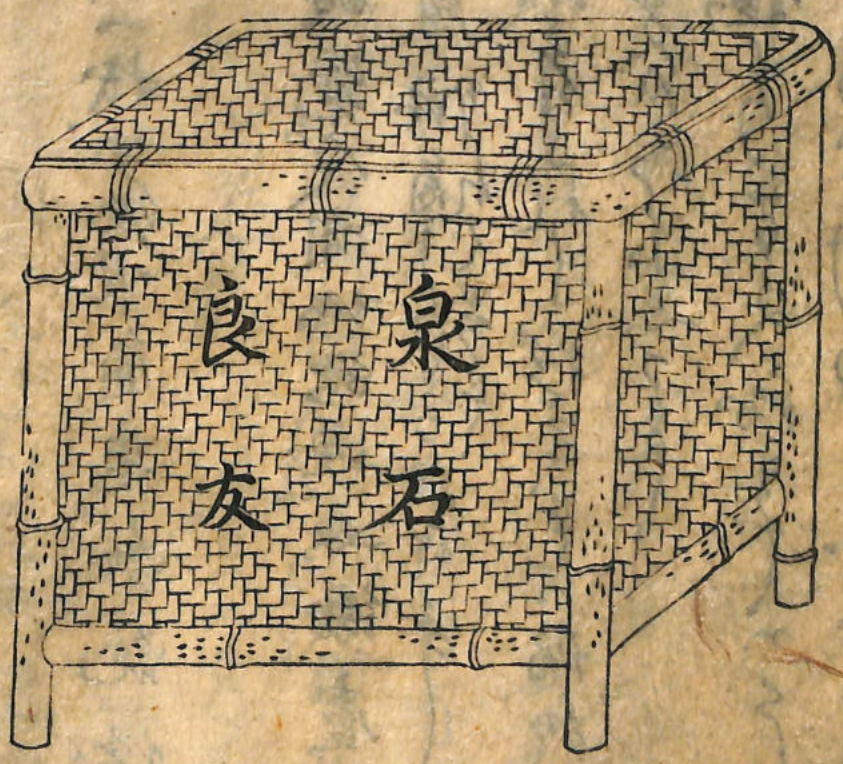 泉石
良友